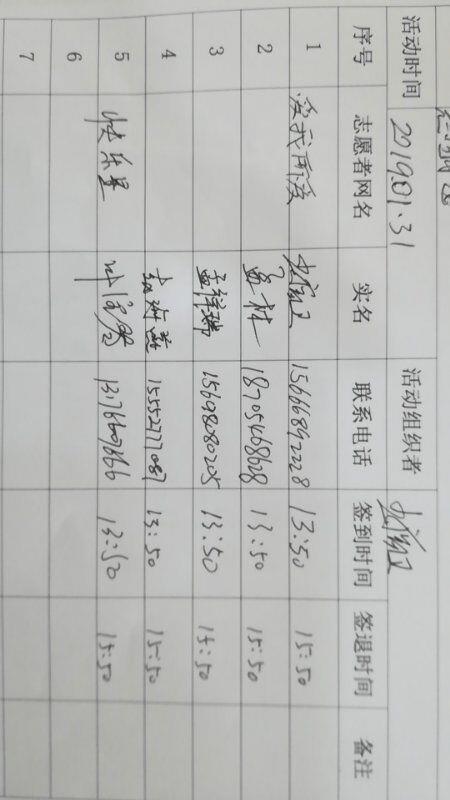 活动时间 2019.01.31 活动组织者
序号 志愿者网名 实名 联系电话 签到时间 签退时间 备注
1 爱我所爱 15666892228 13:50 15:50
2 孟林 18705468628 13:50 15:50
3 孟祥瑞 15698080205 13:50 15:50
4 15552777087 13:50 15:50
5 快乐星 13:50 15:50
6
7